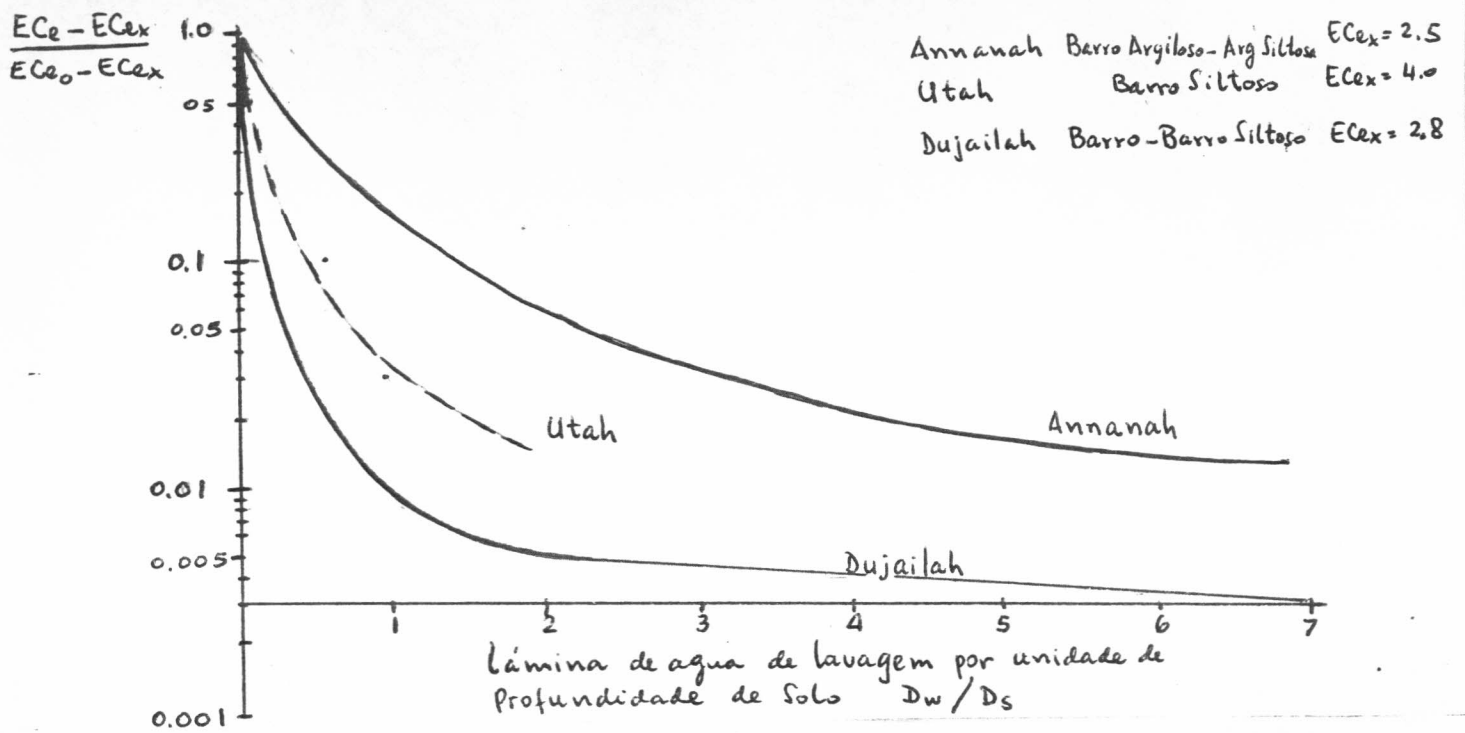 ECe - ECex
ECe₀ - ECex
1.0
05
0.1
0.05
0.01
0.005
0.001
Annanah Barro Argiloso - Arg Siltoso ECex = 2.5
Utah Barro Siltoso ECex = 4.0
Dujailah Barro - Barro Siltoso ECex = 2.8
Utah
Annanah
Dujailah
1 2 3 4 5 6 7
Lámina de agua de lavagem por unidade de
Profundidade de Solo Dw / Ds